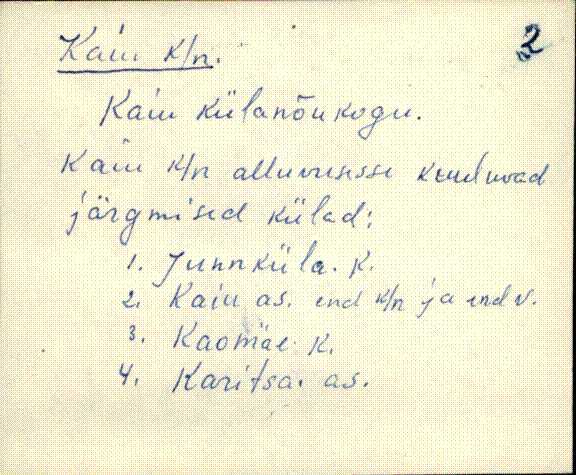 Kaiu k/n.
2
Kaiu külanõukogu.
Kaiu k/n alluvusesse kuuluvad
järgmised külad:
1. Junnküla. k.
2. Kaiu as. end k/n ja end v.
3. Kaomäe k.
4. Karitsa. as.